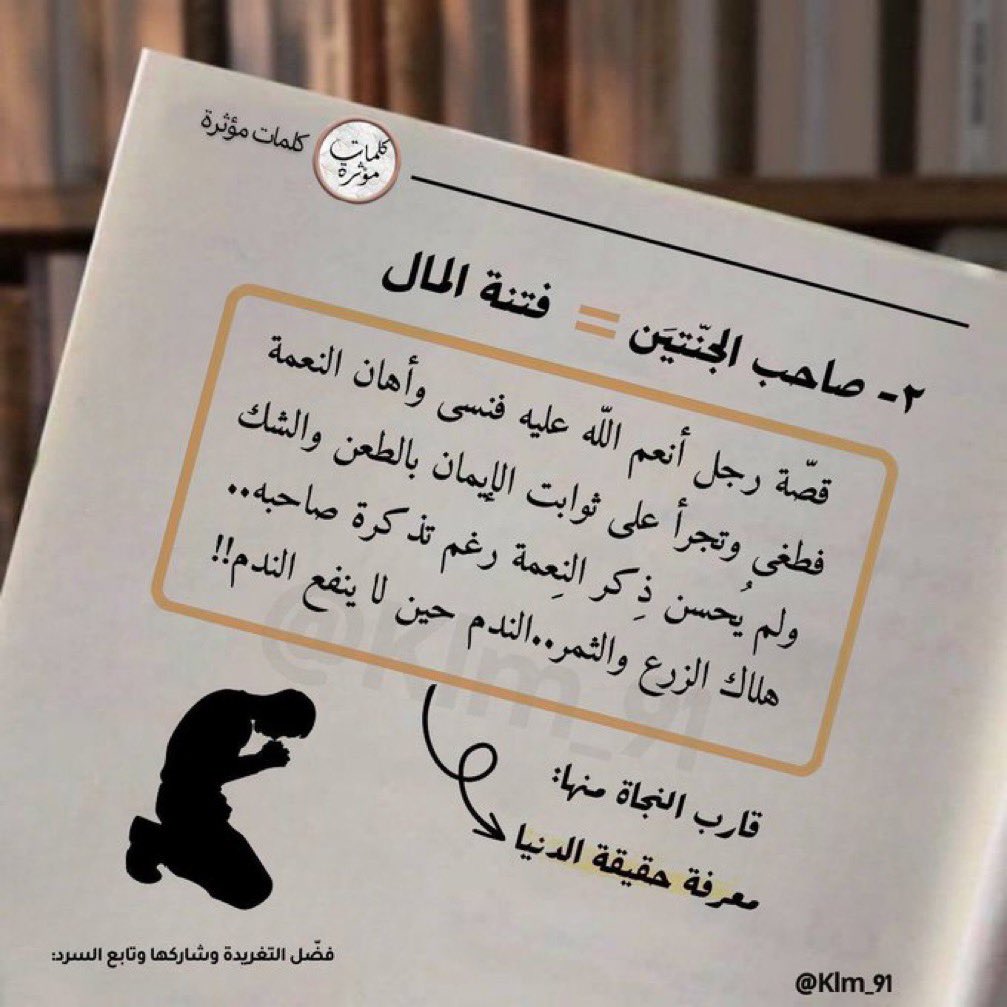 كلمات مؤثرة
كلمات
مؤثرة
٢- صاحب الجنّتيَن = فتنة المال
قصّة رجل أنعم اللّه عليه فنسى وأهان النعمة
فطغى وتجرأ على ثوابت الإيمان بالطعن والشك
ولم يُحسن ذِكر النِعمة رغم تذكرة صاحبه..
هلاك الزرع والثمر..الندم حين لا ينفع الندم!!
@Klm_91
قارب النجاة منها:
معرفة حقيقة الدنيا
فضّل التغريدة وشاركها وتابع السرد:
@Klm_91